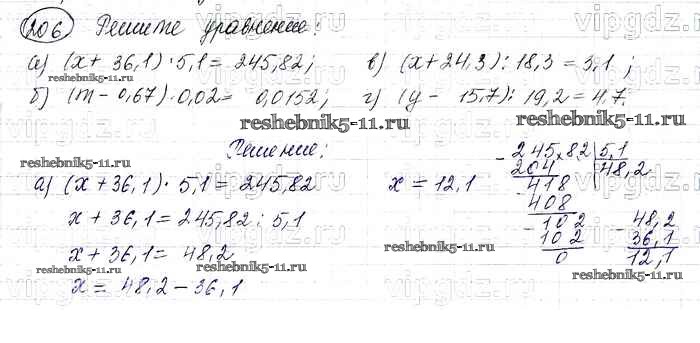 206 Решите уравнение:
а) (x + 36,1) · 5,1 = 245,82; в) (x + 24,3) : 18,3 = 3,1;
б) (m - 0,67) · 0,02 = 0,0152; г) (y - 15,7) : 19,2 = 4,7.
reshebnik5-11.ru
reshebnik5-11.ru
Решение:
reshebnik5-11.ru
а) (x + 36,1) · 5,1 = 245,82 x = 12,1
x + 36,1 = 245,82 : 5,1
x + 36,1 = 48,2
x = 48,2 - 36,1
- 245,82 | 5,1
204 48,2
- 418
408
- 102
102
0
- 48,2
36,1
12,1
reshebnik5-11.ru
reshebnik5-11.ru
reshebnik5-11.ru
reshebnik5-11.ru
vipgdz.ru
vipgdz.ru
vipgdz.ru